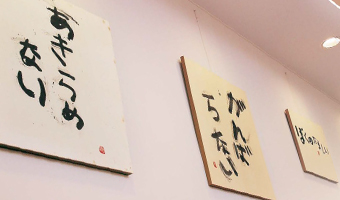 あきらめ
ない
がんば
らない